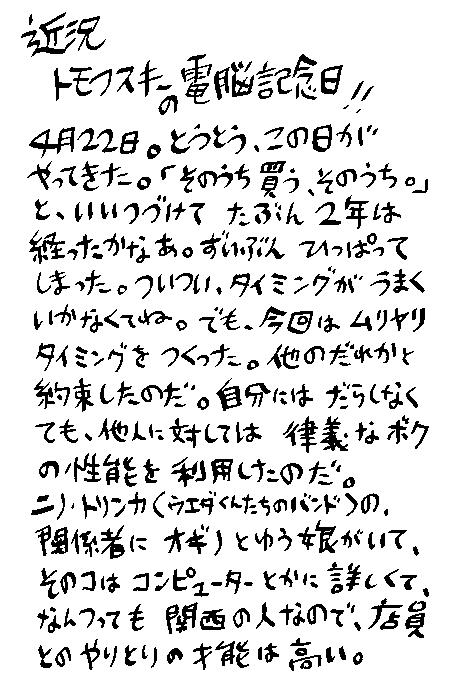 近況
トモフスキーの電脳記念日!!
4月22日。とうとう、この日が
やってきた。「そのうち買う、そのうち。」
と、いいつづけて たぶん 2年は
経ったかなあ。ずいぶん ひっぱって
しまった。ついつい、タイミングが うまく
いかなくてね。でも、今回は ムリヤリ
タイミングを つくった。他のだれかと
約束したのだ。自分には だらしなく
ても、他人に対しては 律義なボク
の性能を利用したのだ。
ニノ・トリンカ(ウエダくんたちのバンド)の、
関係者に オギノとゆう娘がいて、
そのコは コンピューターとかに 詳しくて、
なんつっても 関西の人なので、店員
とのやりとりの才能は 高い。